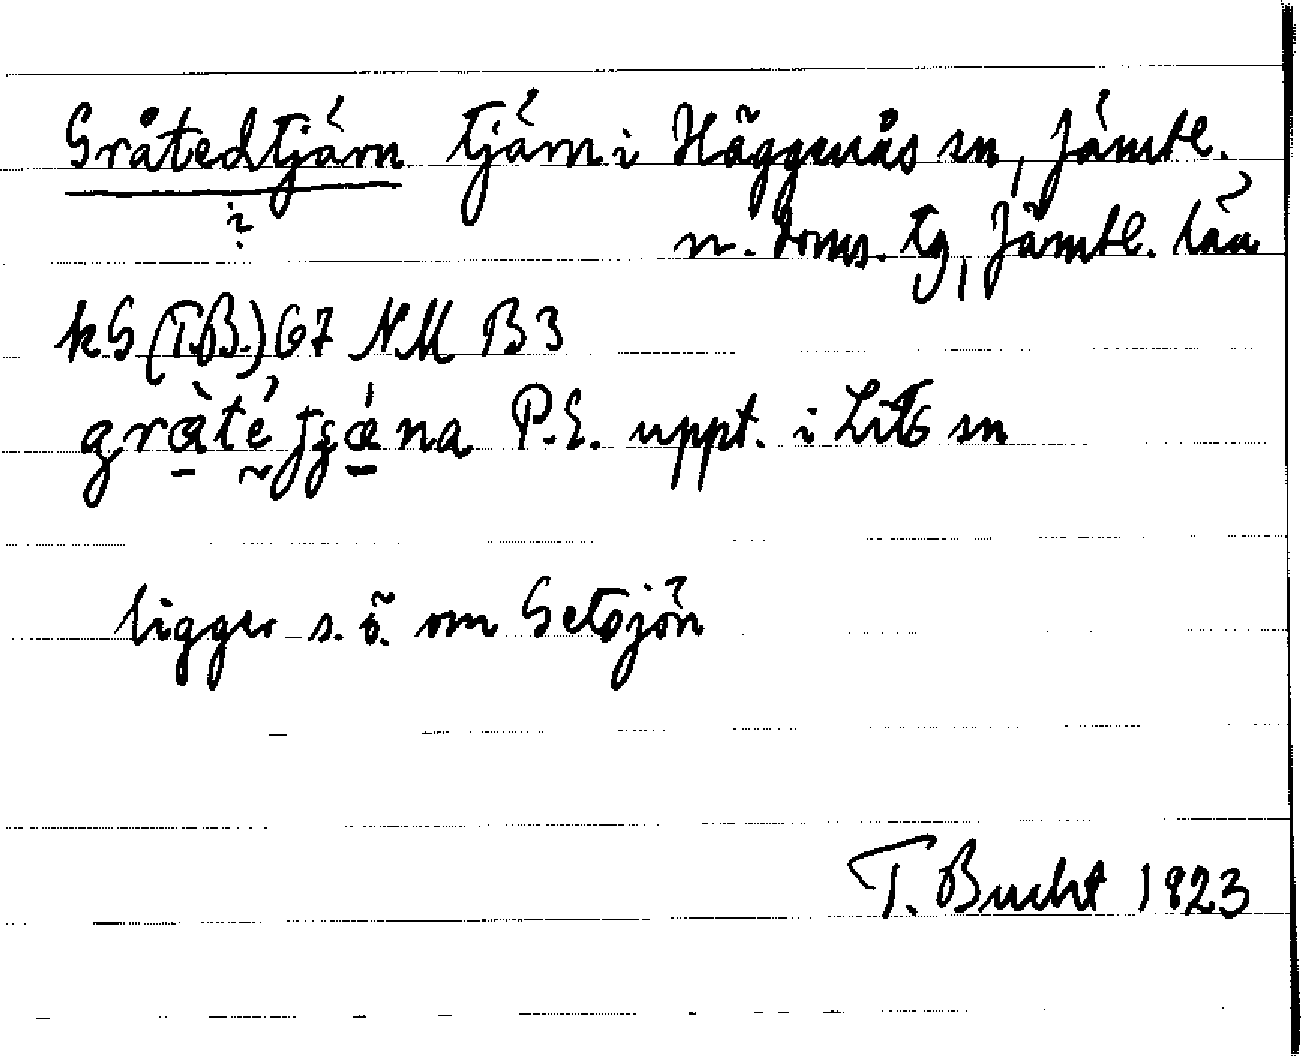 Gråtedtjärn tjärn i Häggenås sn, Jämtl.
n. doms. tg, Jämtl. län
kG (T.B.) 67 NM B3
P.E. uppt. i Lits sn
ligger s. ö. om Getsjön
T. Bucht 1923